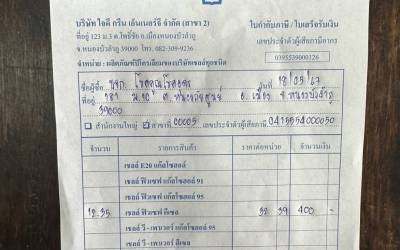 บริษัท ไอดี กรีน เอ็นเนอร์ยี จำกัด (สาขา 2)
ที่อยู่ 123 ม.3 ต.โพธิ์ชัย อ.เมืองหนองบัวลำภู
จ.หนองบัวลำภู 39000 โทร. 082-309-9236
จำหน่าย : ผลิตภัณฑ์ปิโตรเลียมของบริษัทเชลล์ทุกชนิด
ใบกำกับภาษี / ใบเสร็จรับเงิน
เลขประจำตัวผู้เสียภาษีอากร
0395539000126
ชื่อผู้ซื้อ หจก. วันที่ 18/05/67
ที่อยู่ 181 ม.10 ต. อ. เมือง จ. หนองบัวลำภู
39000
สำนักงานใหญ่ สาขาที่ 00005 เลขประจำตัวผู้เสียภาษี 0415554000050
จำนวน รายการสินค้า ราคาต่อหน่วย จำนวนเงิน
เชลล์ E20 แก๊สโซฮอล์
เชลล์ ฟิวเซฟ แก๊สโซฮอล์ 91
เชลล์ ฟิวเซฟ แก๊สโซฮอล์ 95
12.35 เชลล์ ฟิวเซฟ ดีเซล 32 39 400 -
เชลล์ วี - เพาเวอร์ แก๊สโซฮอล์ 95
เชลล์ วี - เพาเวอร์ ดีเซล